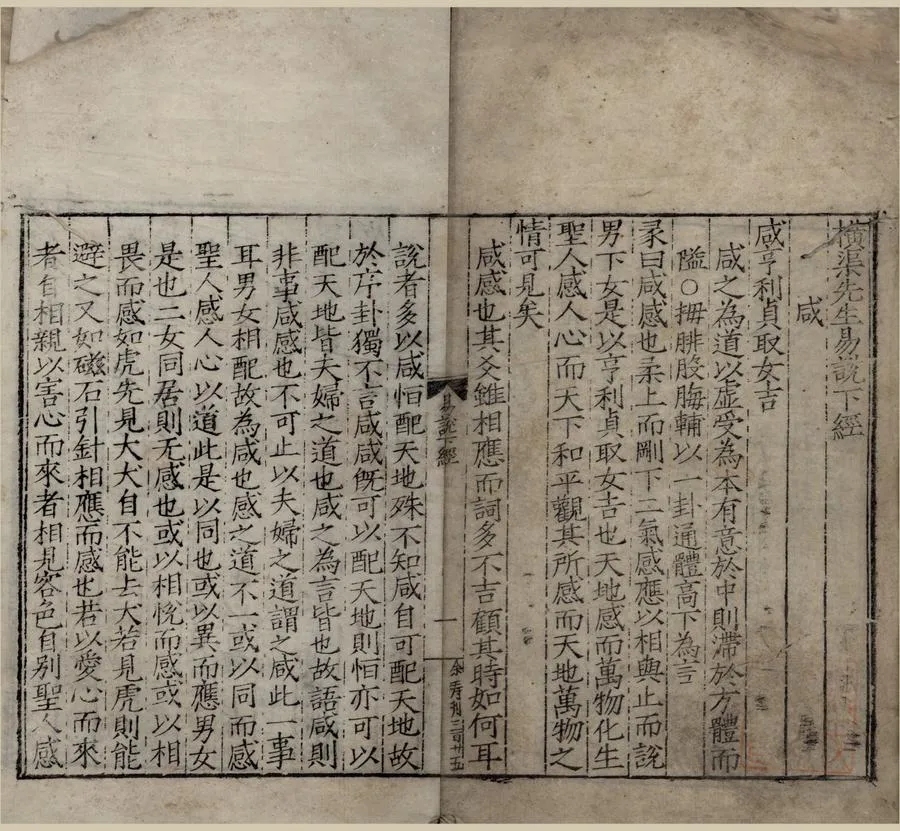 橫渠先生易說下經
咸
咸亨利貞取女吉
咸之為道以虛受為本有意於中則滯於方體而
隘○拇腓股脢輔以一卦通體高下為言
彖曰咸感也柔上而剛下二氣感應以相與止而說
男下女是以亨利貞取女吉也天地感而萬物化生
聖人感人心而天下和平觀其所感而天地萬物之
情可見矣
咸感也其爻雖相應而詞多不吉顧其時如何耳
易說下經
一
余秀刊三百廿五
說者多以咸恒配天地殊不知咸自可配天地故
於序卦獨不言咸咸旣可以配天地則恒亦可以
配天地皆夫婦之道也咸之為言皆也故語咸則
非事咸感也不可止以夫婦之道謂之咸此一事
耳男女相配故為咸也感之道不一或以同而感
聖人感人心以道此是以同也或以異而應男女
是也二女同居則无感也或以相悅而感或以相
畏而感如虎先見犬犬自不能去犬若見虎則能
避之又如磁石引針相應而感也若以愛心而來
者自相親以害心而來者相見容色自别聖人感